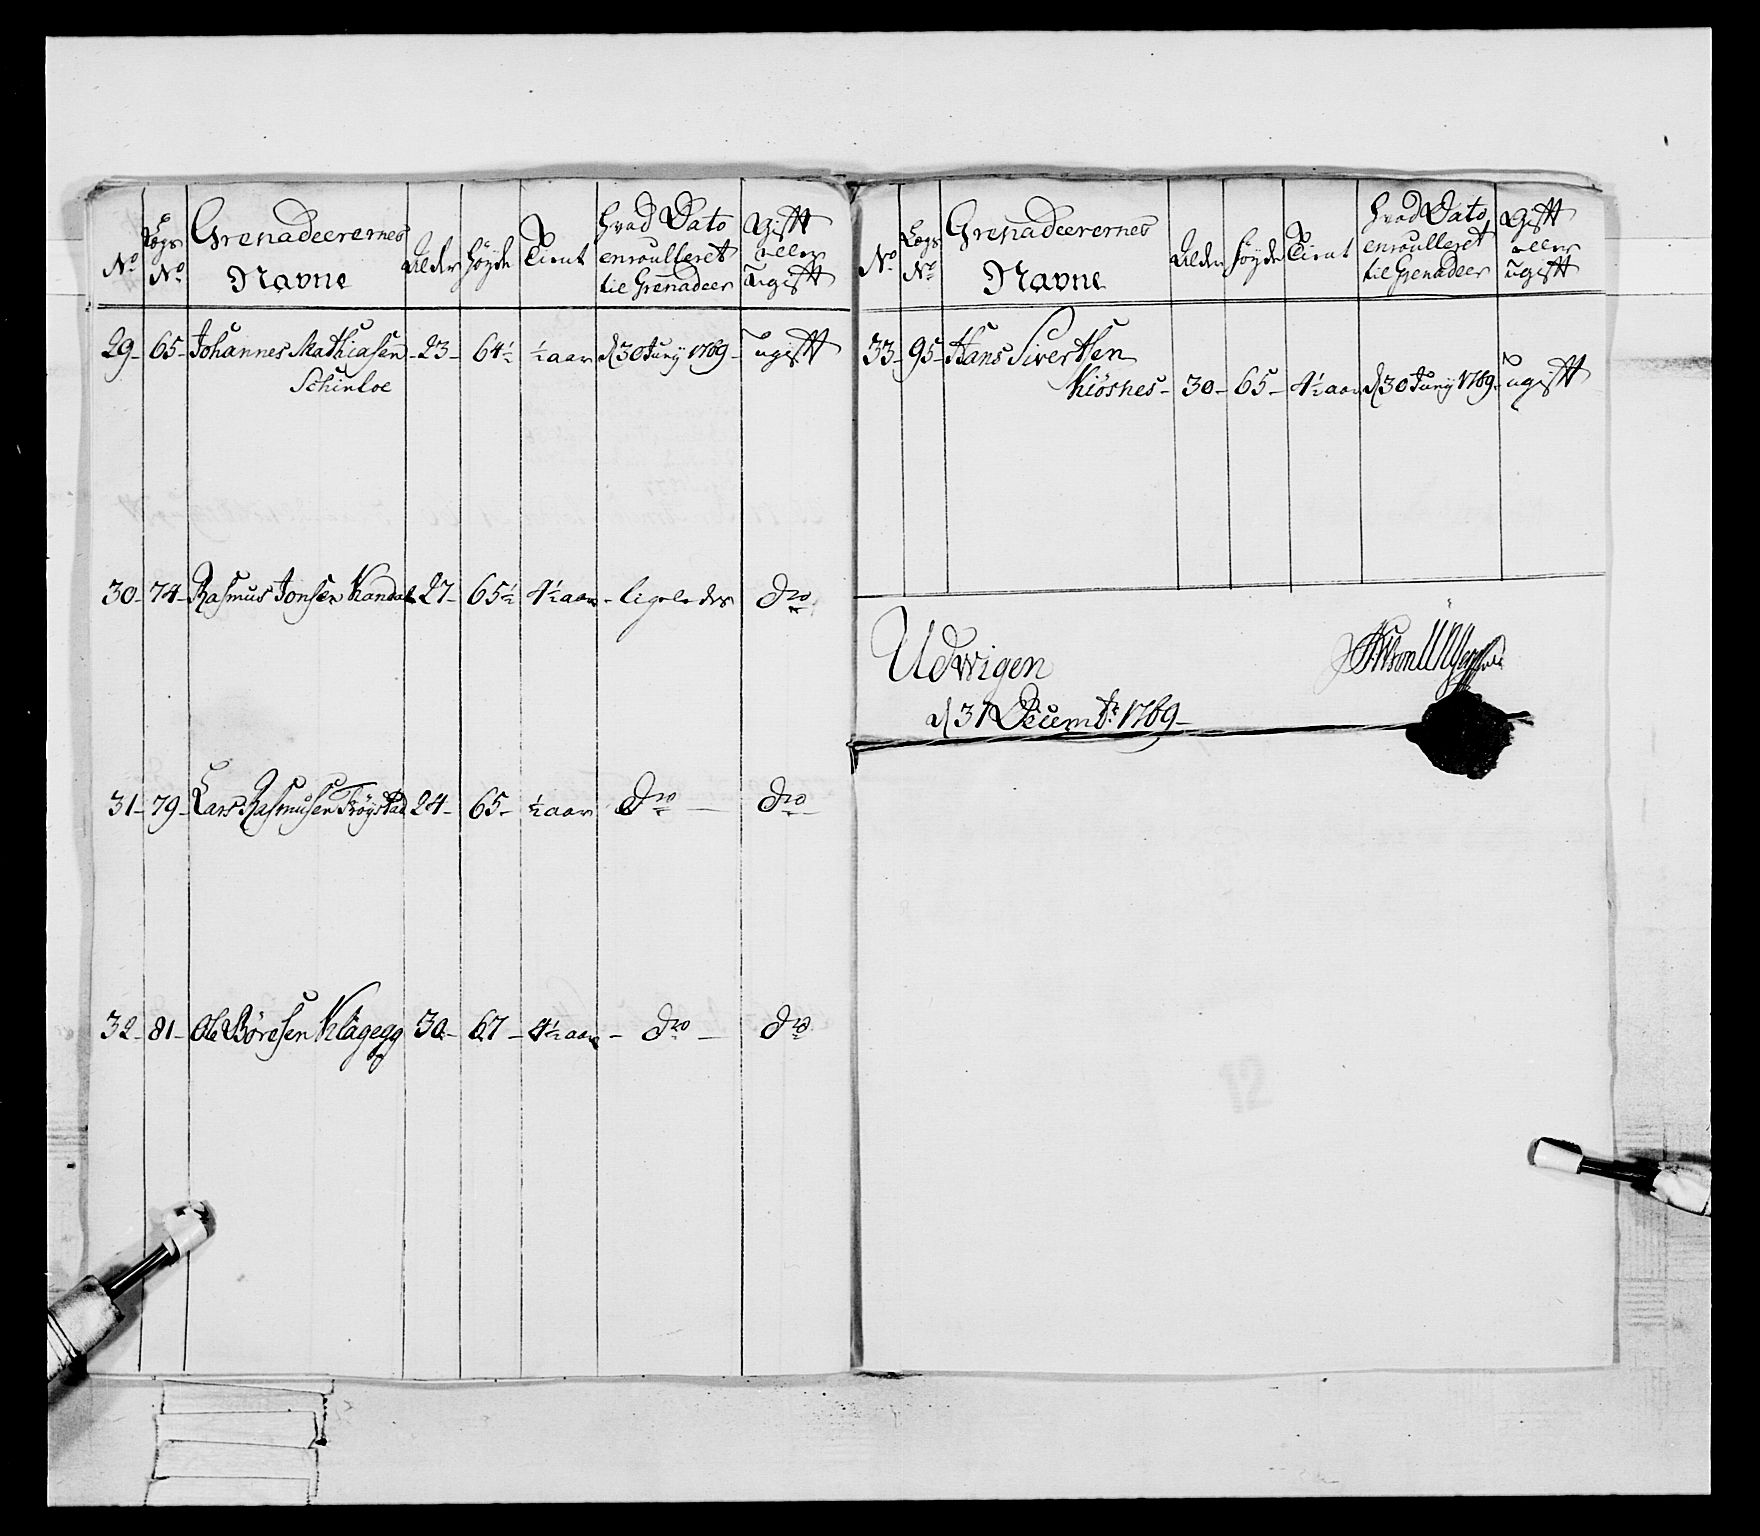 No
Lægs No
Grenadeerernes Navne
Alder
Høyde
Tient
Hvad Dato enroulleret til Grenadeer
Gift eller Ugift
29- 65- Johannes Mathiasen -23- 64½ ½ aar d 30 Juny 1789- ugift
Schinloe
30- 74- Rasmus Jonsen Kandal 27- 65½ 4½ aar - ligeledes dro
31- 79- Lars Rasmusen Frøystad 24- 65- ½ aar dro - dro
32- 81- Ole Børesen Klagegg 30- 67- 4½ aar - dro - dro
No
Lægs No
Grenadeerernes Navne
Alder
Høyde
Tient
Hvad Dato enroulleret til Grenadeer
Gift eller Ugift
33- 95- Hans Sivertsen
Kiøsnes- 30- 65- 4½ aar d 30 Juny 1789- ugift
Udvigen
d 31 Decembr: 1789-
12